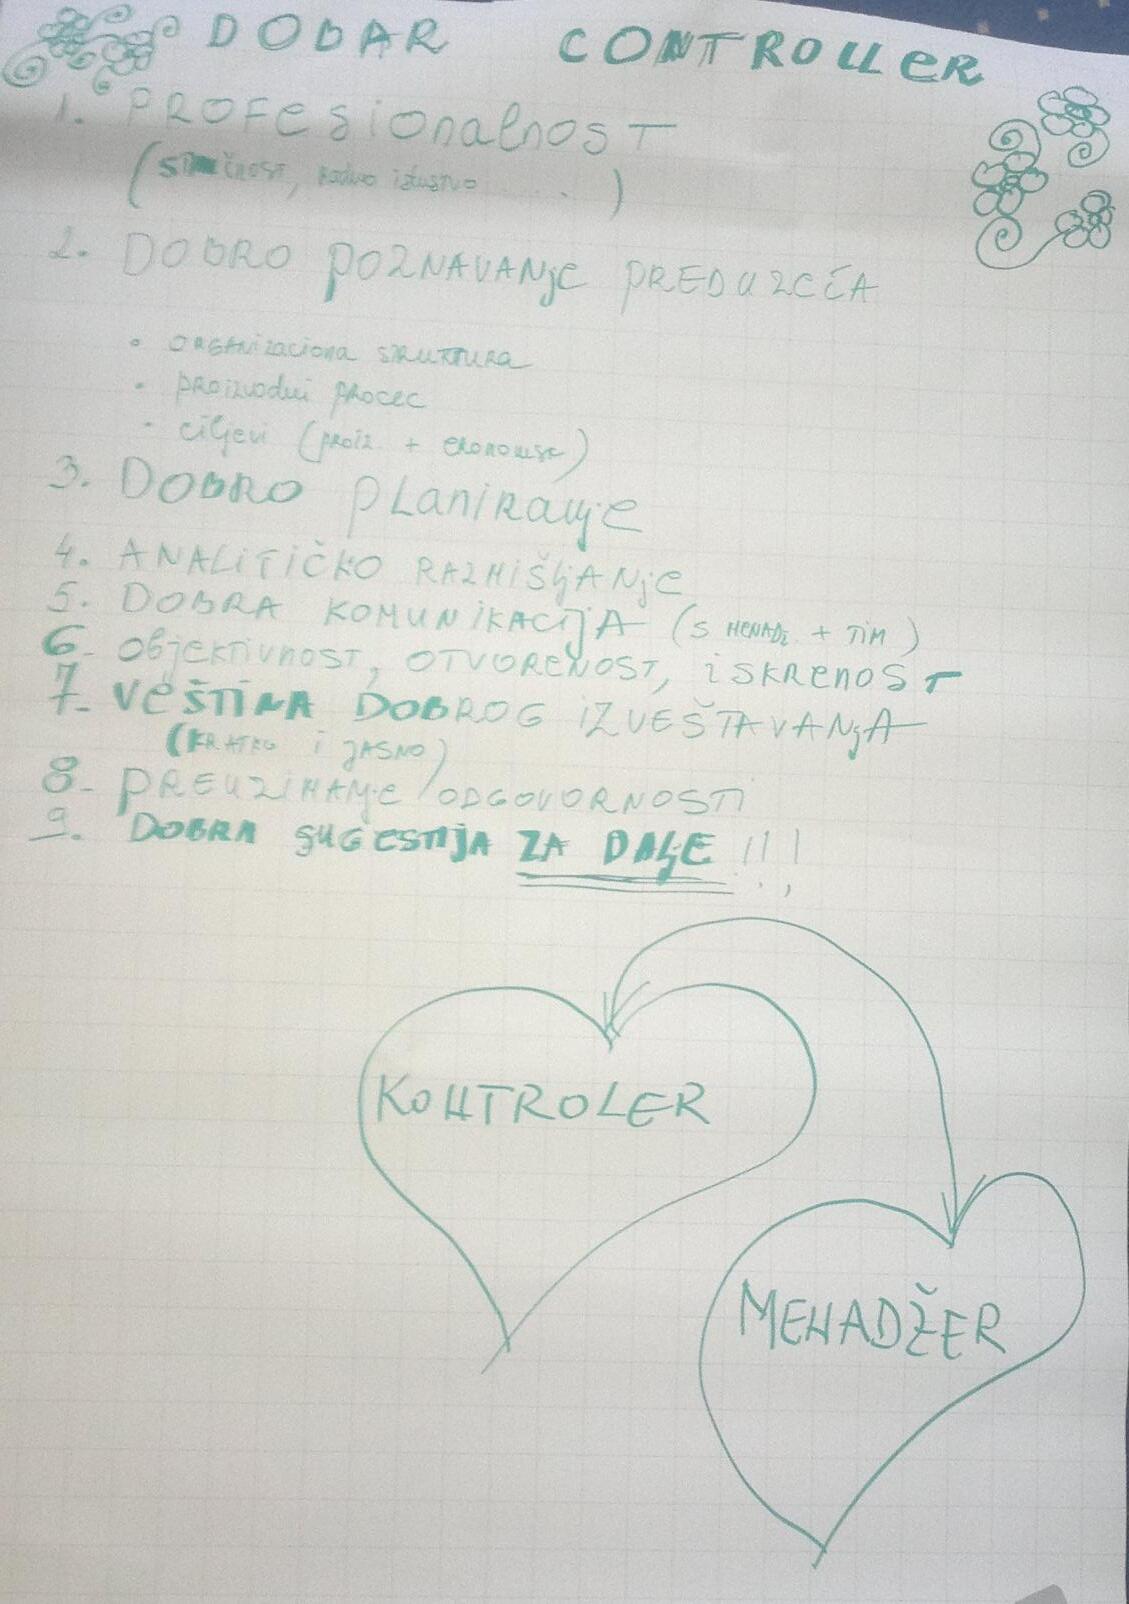 DOBAR CONTROLLER
1. PROFesionalnost
(STRUČNOST, RADNO iskustvo ..... )
2. DOBRO POZNAVANjE PREDUZEĆA
• ORGANizaciona STRUKTURA
• proizvodni procec
• ciljevi (proiz. + ekonomse)
3. DOBRO planiranje
4. ANALITIČKO RAZMIŠljANjE
5. DOBRA KOMUNIKACIJA (S MENADž. + TIM)
6. Objektivnost, OTVORENOST, iSKRENOST
7. VEŠTINA DOBROG IZVEŠTAVANjA
(KRATKO i JASNO)
8. PREUZIMANjE ODGOVORNOSTI
9. DOBRA SUGESTIJA ZA DALjE !!!
KOHTROLER
MEHADŽER